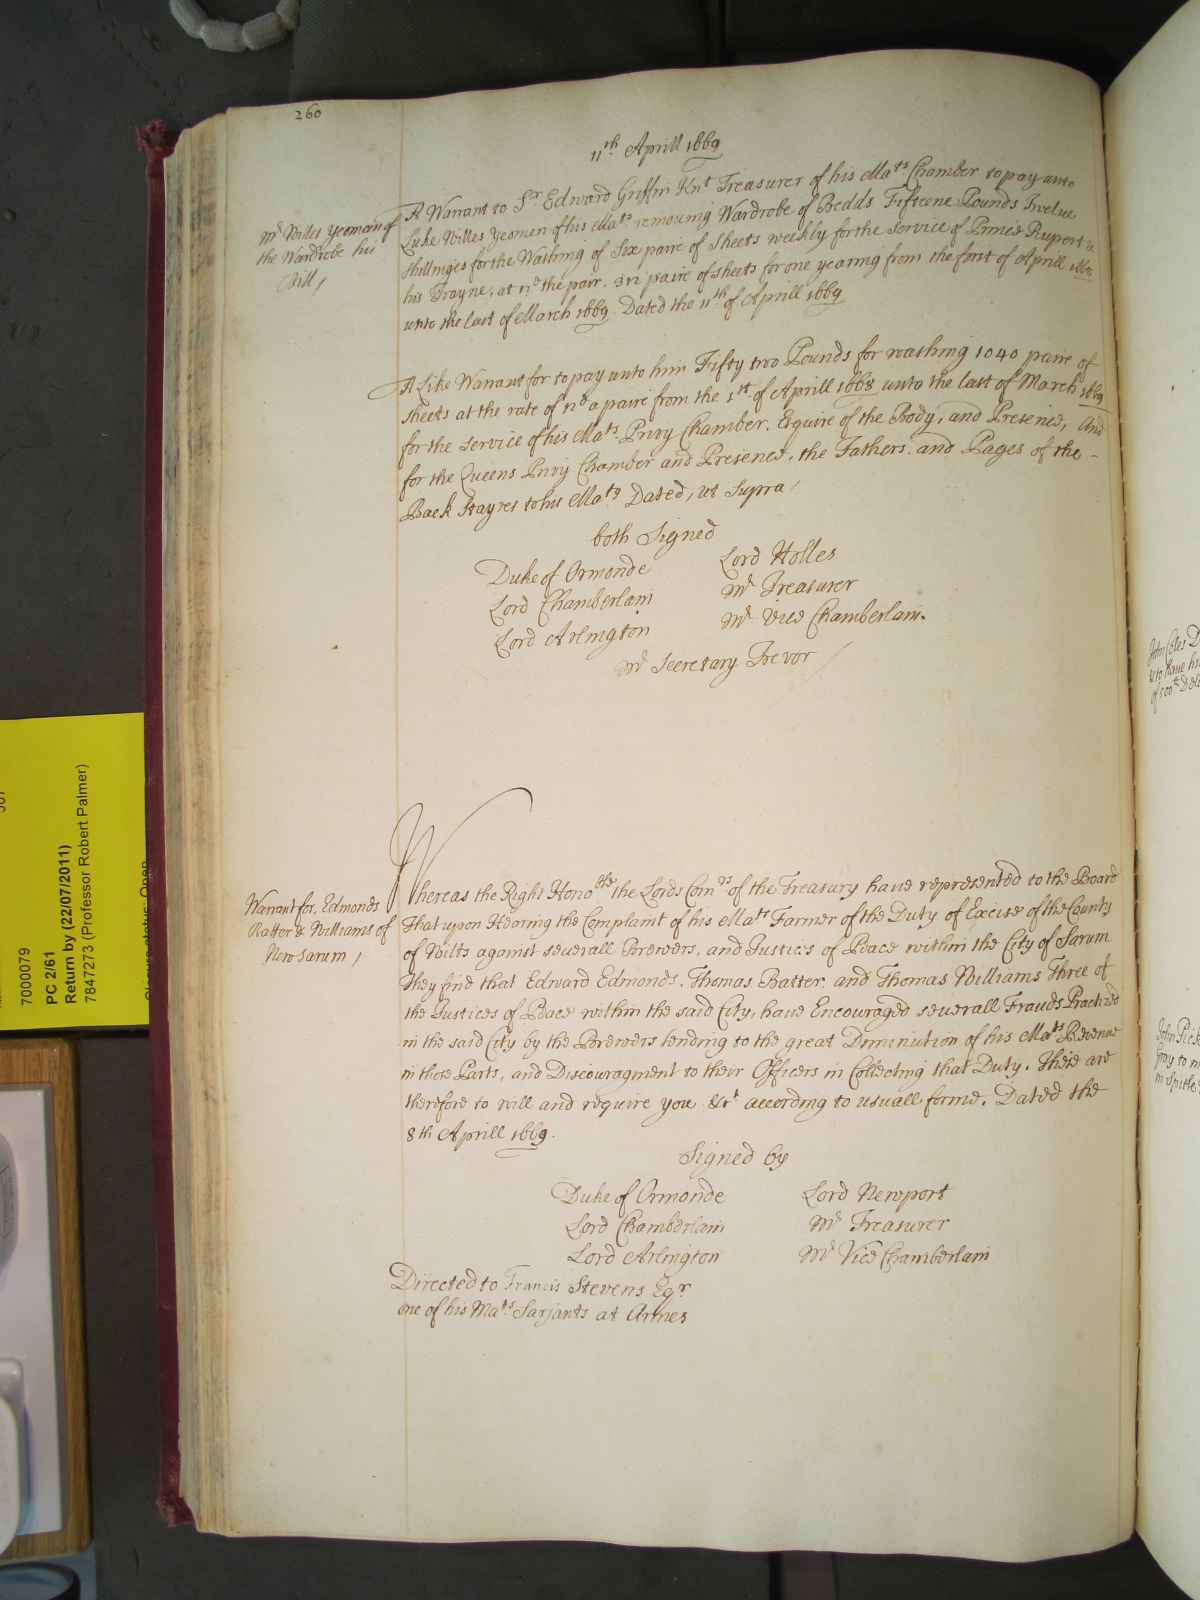 260
11th Aprill 1669
Mr Willes yeoman of
the Wardrobe his
Bill /
A Warrant to Sr Edward Griffin Knt Treasurer of his Mats Chamber to pay unto
Luke Willes yeomen of his Mats remouing Wardrobe of Bedds Fifteene Pounds Twelue
shillinges for the Washing of Six paire of sheets weekly for the Service of Prince Rupert &
his Trayne, at 12d the pair. 312 paire of sheets for one yearing from the first of Aprill 1668
unto the last of March 1669. Dated the 11th of Aprill 1669
A Like Warrant for to pay unto him Fifty two Pounds for washing 1040 paire of
sheets at the rate of 12d a paire from the 1st of Aprill 1668 unto the last of March 1669
for the service of his Mats Privy Chamber. Esquire of the Body, and Presence, And
for the Queens Privy Chamber and Presence, the Fathers, and Pages of the -
Back Stayres to his Maty Dated, ut Supra /
both Signed
Duke of Ormonde
Lord Chamberlain
Lord Arlington
Lord Holles
Mr Treasurer
Mr Vice Chamberlain.
Mr Secretary Trevor /
Warrant for, Edmonds
Batter & Williams of
New Sarum /
Whereas the Right Honoble the Lords Comrs of the Treasury have represented to the Board
That upon Hearing the Complaint of his Mats Farmer of the Duty of Excise of the County
of Wilts against seuerall Brewers, and Justices of Peace within the City of Sarum
They find that Edward Edmonds, Thomas Batter, and Thomas Williams Three of
the Justices of Peace within the said City, have Encouraged seuerall Frauds Practized
in the said City by the Brewers tending to the great Diminution of his Mats Revenue
in those Parts, and Discouragment to their Officers in Collecting that Duty. These are
therefore to will and require you &ct according to usuall forme. Dated the
8th Aprill 1669.
Signed by
Duke of Ormonde
Lord Chamberlain
Lord Arlington
Lord Newport
Mr Treasurer
Mr Vice Chamberlain
Directed to Francis Stevens Eqr
one of his Mats Sarjants at Armes
John Coles
& to have hi
of 500th
John
Gray to m
in
7000079
PC 2/61
Return by (22/07/2011)
7847273 (Professor Robert Palmer)
Closure status: Open